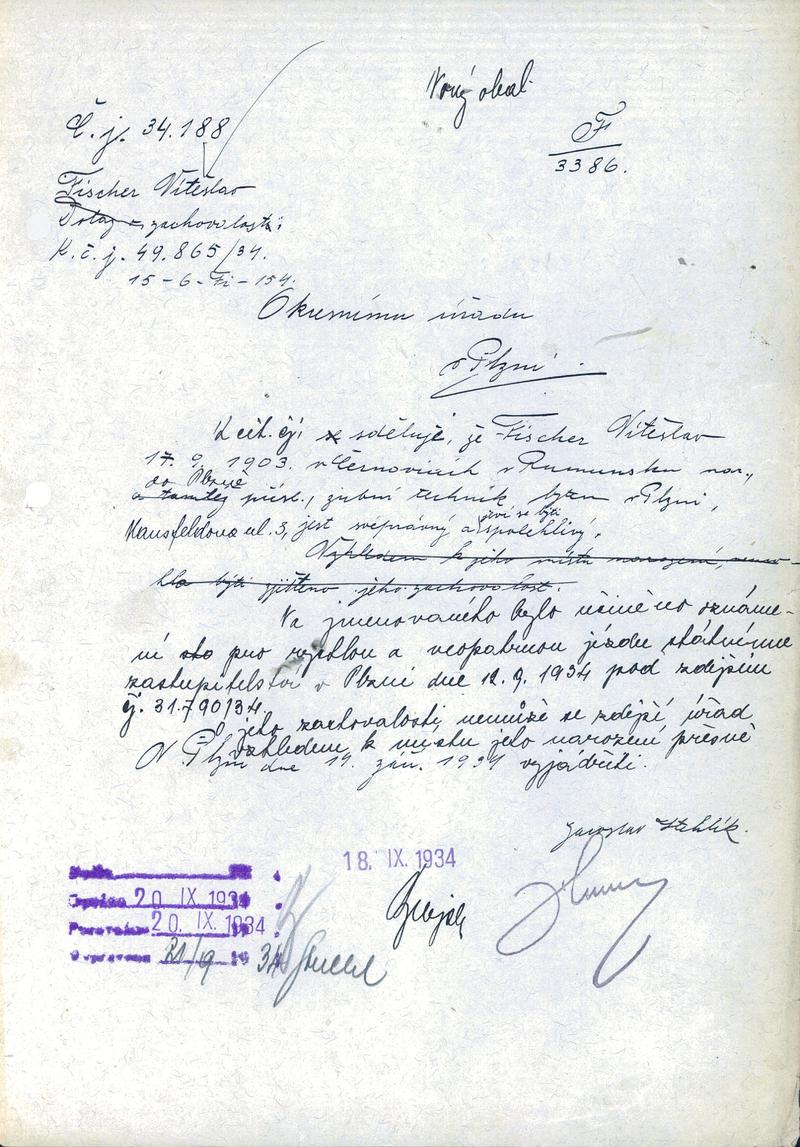 Nový obal
Č. j. 34.188
F
3386.
Fischer Vítěslav
Dotaz o zachovalosti
K. č. j. 49.865/34.
15-6-Fi-154.
Okresnímu úřadu
v Plzni.
K cit. čj. se sděluje, že Fischer Vítěslav
17. 9. 1903. v Černovicích v Rumunsku nar.,
do Plzně
a tamtéž přísl., zubní technik bytem v Plzni,
zdá se býti
Mansfeldova ul. 3, jest svéprávný a spolehlivý.
Vzhledem k jeho místu narození,
býti zjištěno jeho zachovalost.
Na jmenovaného bylo učiněno oznáme-
ní pro rychlou a neopatrnou jízdu státnímu
zastupitelství v Plzni dne 12. 9. 1934 pod zdejším
čj. 31.790/34.
O jeho zachovalosti nemůže se zdejší úřad
vzhledem k místu jeho narození přesně
V Plzni dne 14. září. 1934 vyjádřiti.
Jaroslav Stehlík.
18. IX. 1934
20 IX 1934
20. IX. 1934
21/9 34